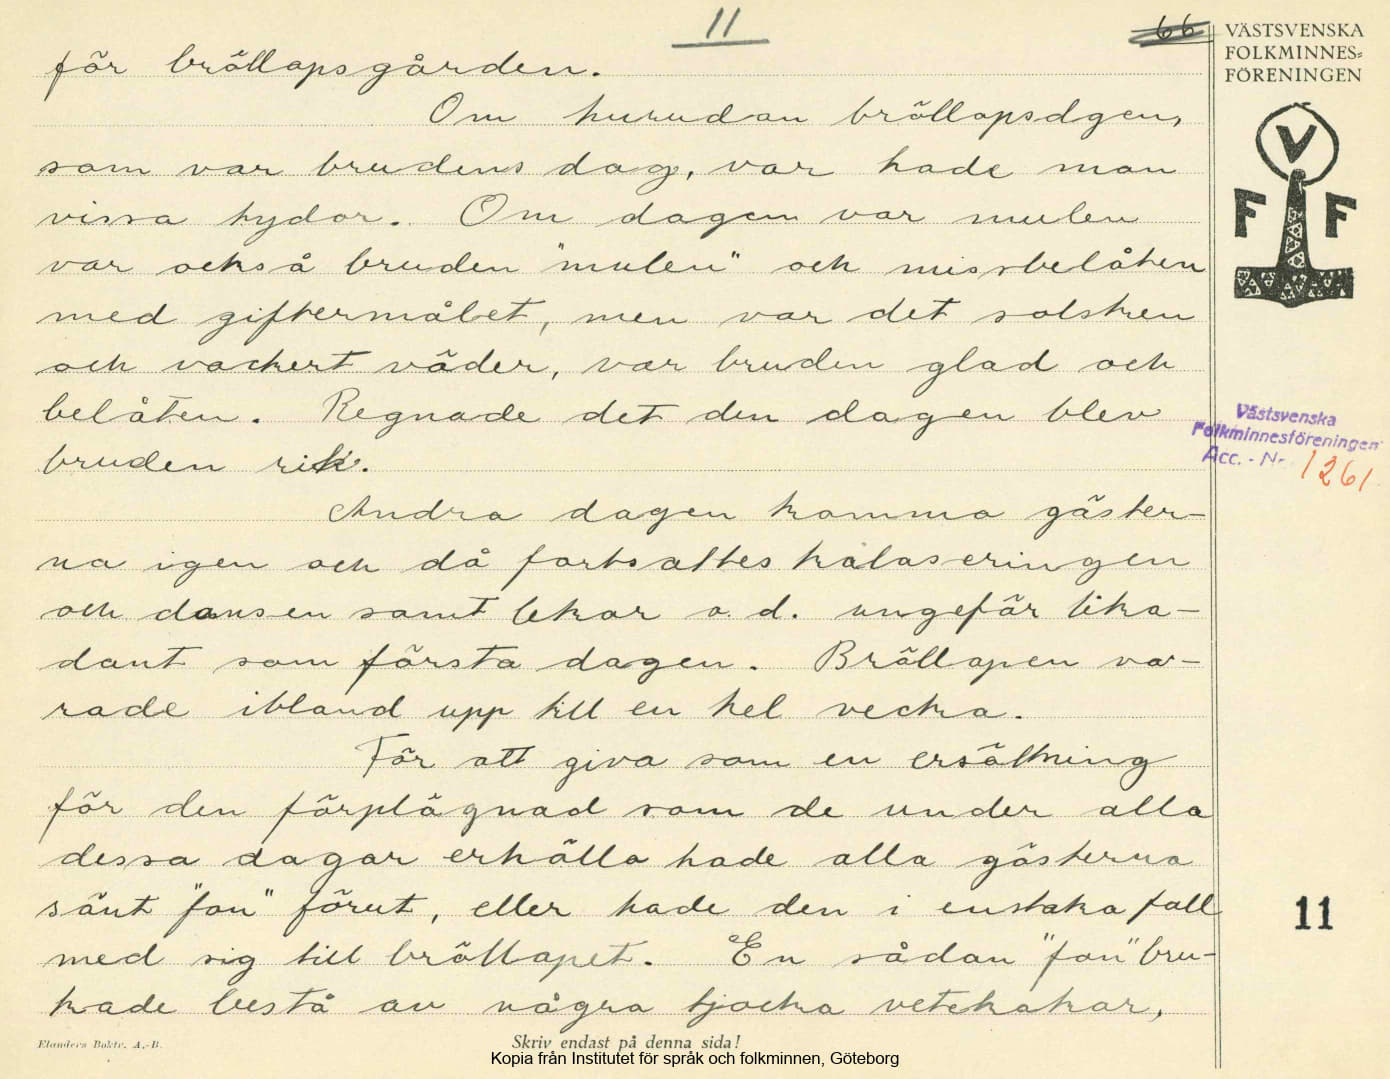 11
66
VÄSTSVENSKA
FOLKMINNES=
FÖRENINGEN
V
F F
för bröllopsgården.
Om hurudan bröllopsdgen,
som var brudens dag, var hade man
vissa tydor. Om dagen var mulen
var också bruden "mulen" och missbelåten
med giftermålet, men var det solsken
och vackert väder, var bruden glad och
belåten. Regnade det den dagen blev
bruden rik.
Andra dagen komma gäster-
na igen och då fortsattes kalaseringen
och dansen samt lekar o. d. ungefär lika-
dant som första dagen. Bröllopen va-
rade ibland upp till en hel vecka.
För att giva som en ersättning
för den förplägnad som de under alla
dessa dagar erhålla hade alla gästerna
sänt "fon" förut, eller hade den i enstaka fall
med sig till bröllopet. En sådan "fon" bru-
kade bestå av några tjocka vetekakor,
Västsvenska
Folkminnesföreningen
Acc. - Nr. 1261
11
Elanders Boktr. A.-B.
Skriv endast på denna sida!
Kopia från Institutet för språk och folkminnen, Göteborg